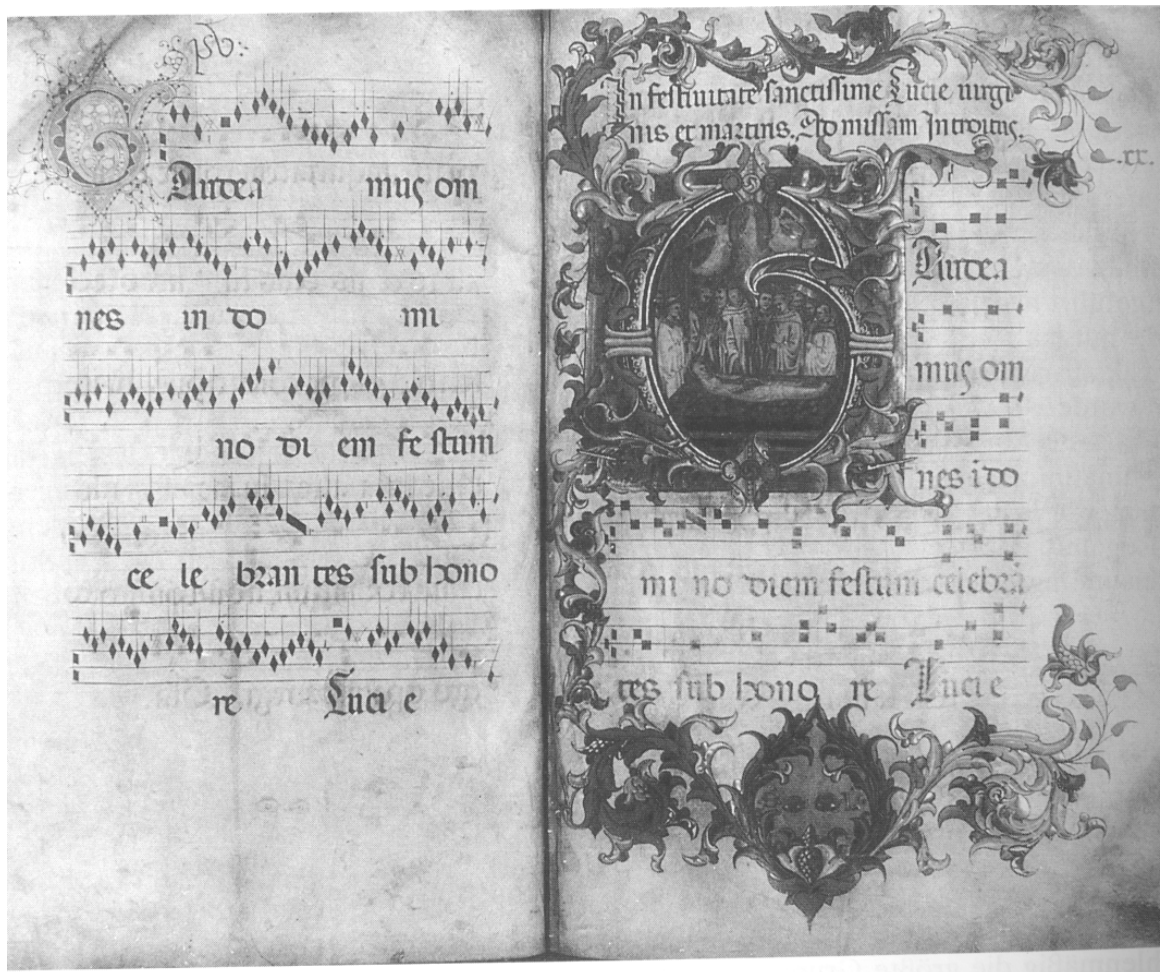 psv:
Gaudea mus om
nes in do mi
no di em festum
ce le bran tes sub hono
re Lucie
In festiuitate sanctissime Lucie uirgi
nis et martiris. Ad missam Introitus.
.xx.
Gaudea
mus om
nes i do
mi no diem festum celebrā
tes sub hono re Lucie